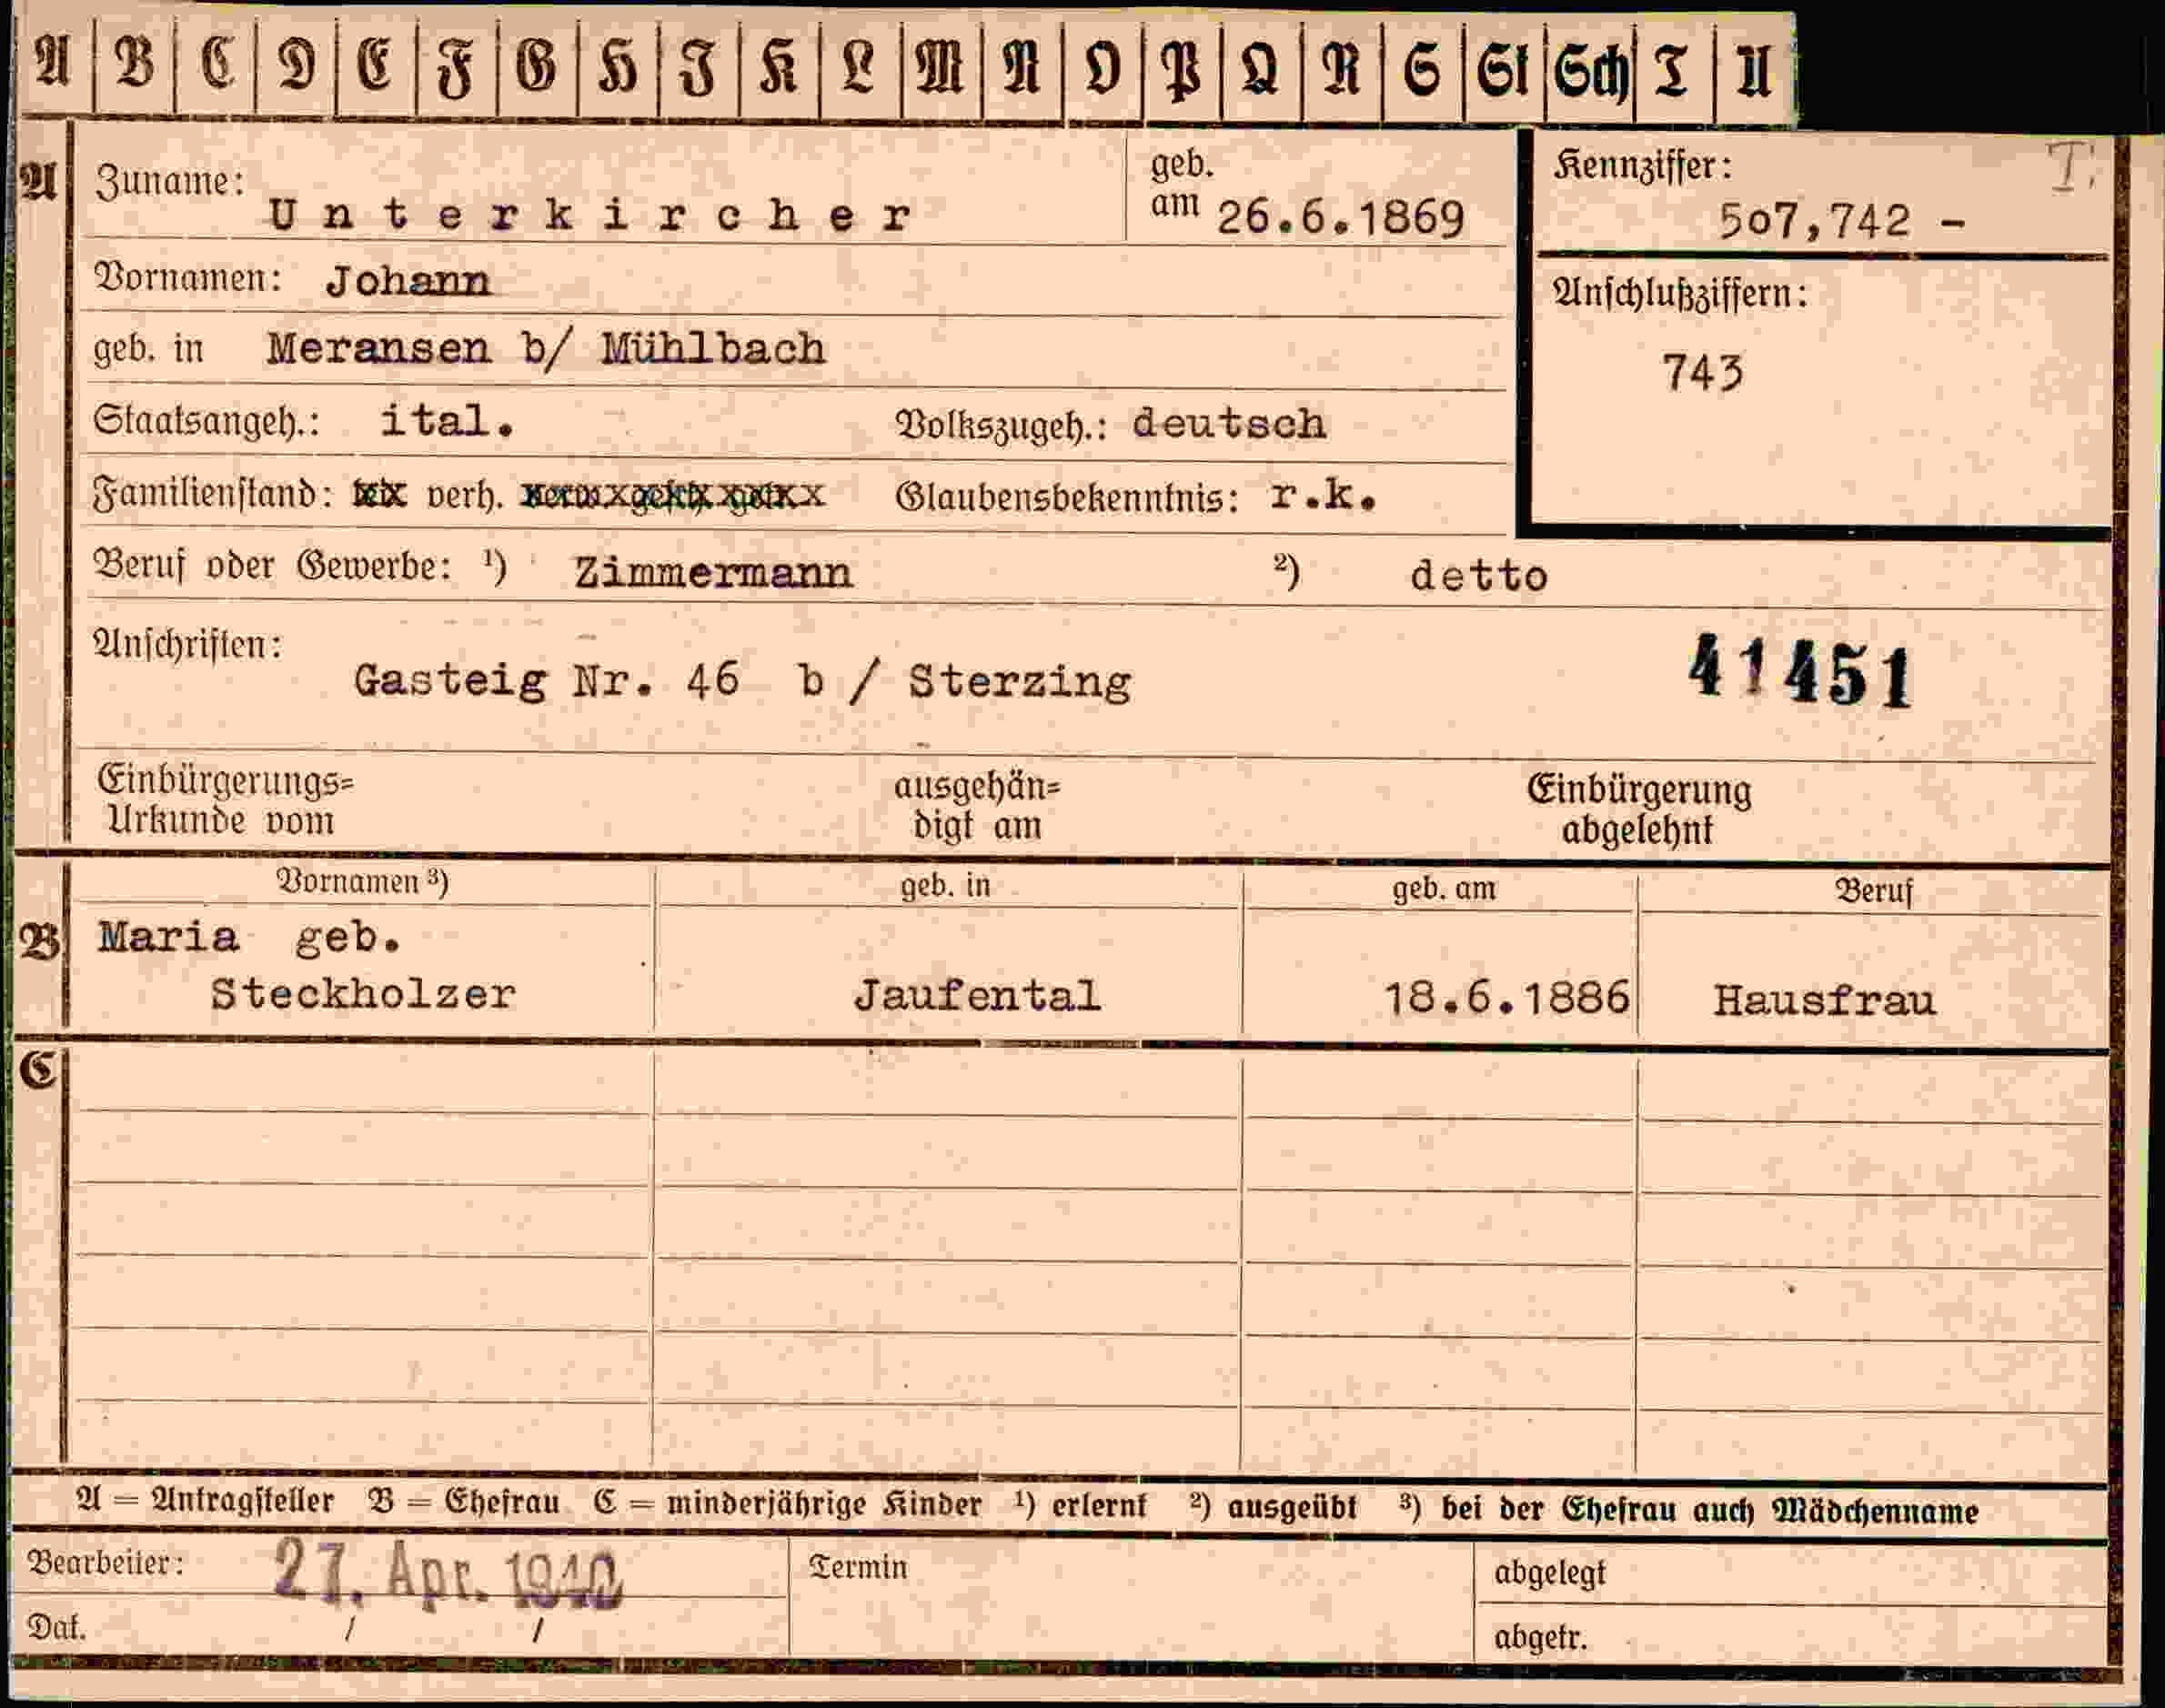 A B C D E F G H J K L M N O P Q R S St Sch T U
A Zuname: Unterkircher geb. am 26.6.1869
Kennziffer: 507,742 -
T.
Vornamen: Johann
Anschlußziffern:
743
geb. in Meransen b/ Mühlbach
Staatsangeh.: ital. Volkszugeh.: deutsch
Familienstand: verh. Glaubensbekenntnis: r.k.
Beruf oder Gewerbe: ¹) Zimmermann ²) detto
Anschriften:
Gasteig Nr. 46 b / Sterzing
41451
Einbürgerungs= ausgehän= Einbürgerung
Urkunde vom digt am abgelehnt
Vornamen ³) geb. in geb. am Beruf
B Maria geb.
Steckholzer Jaufental 18.6.1886 Hausfrau
C
A = Antragsteller B = Ehefrau C = minderjährige Kinder ¹) erlernt ²) ausgeübt ³) bei der Ehefrau auch Mädchenname
Bearbeiter: 27. Apr. 1940 Termin abgelegt
Dat. / / abgetr.